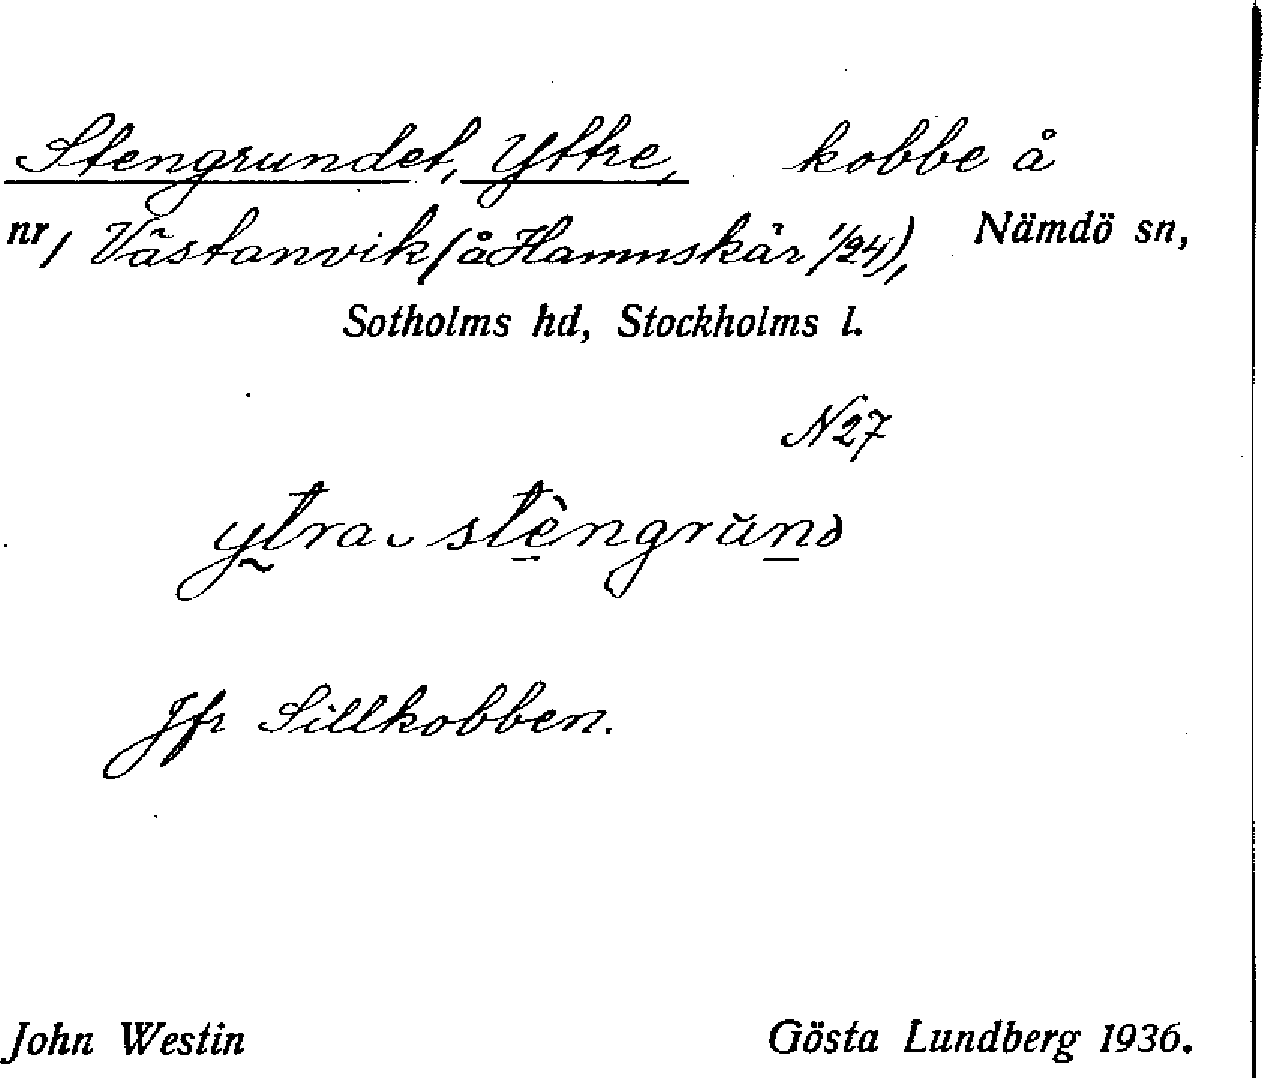 Stengrundet, Yttre, kobbe å
nr, Västanvik (å Hamnskär 1/24), Nämdö sn,
Sotholms hd, Stockholms l.
N 27
ytra stèngrŭnd
Jfr Sillkobben.
John Westin Gösta Lundberg 1936.